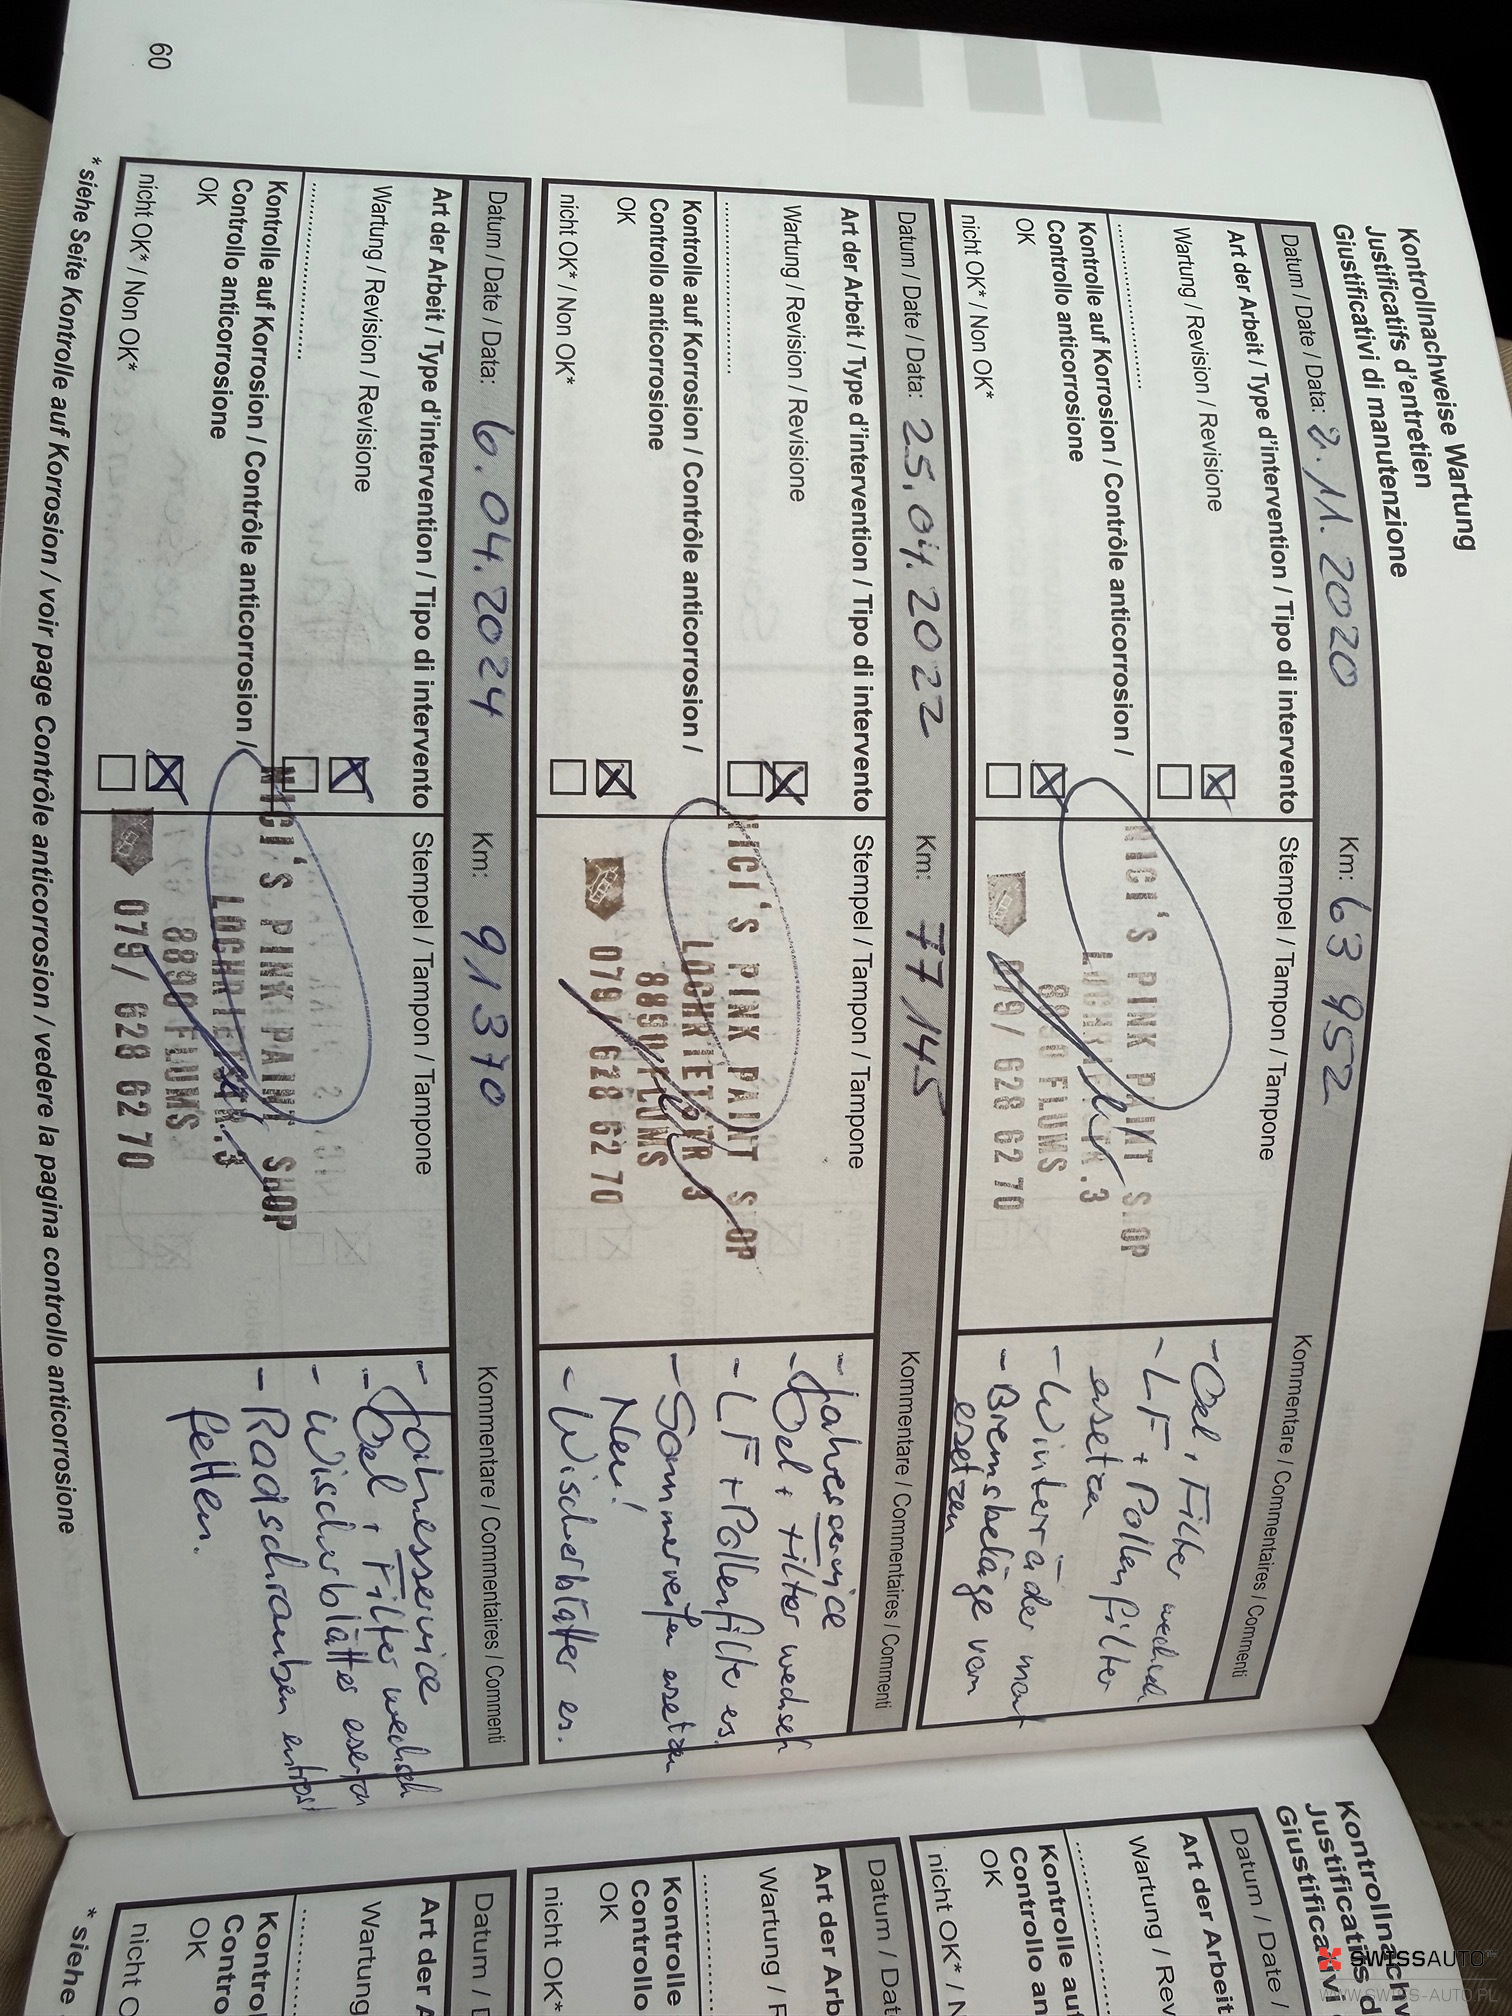 Kontrollnachweise Wartung
Justificatifs d'entretien
Giustificativi di manutenzione
Datum / Date / Data: 2.11.2020 Km: 63 952 Kommentare / Commentaires / Commenti
Art der Arbeit / Type d'intervention / Tipo di intervento Stempel / Tampon / Tampone
Wartung / Revision / Revisione
Kontrolle auf Korrosion / Contrôle anticorrosion /
Controllo anticorrosione
OK
nicht OK* / Non OK*
NICI'S PINK PAINT SHOP
LOCHRIETSTR.3
8890 FLUMS
079/ 628 62 70
- Oel + Filter
- LF + Pollenfilter
ersetzen
- Winterräder mont
- Bremsbeläge vorn
ersetzen
Datum / Date / Data: 25.04.2022 Km: 77 145 Kommentare / Commentaires / Commenti
Art der Arbeit / Type d'intervention / Tipo di intervento Stempel / Tampon / Tampone
Wartung / Revision / Revisione
Kontrolle auf Korrosion / Contrôle anticorrosion /
Controllo anticorrosione
OK
nicht OK* / Non OK*
NICI'S PINK PAINT SHOP
LOCHRIETSTR.3
8890 FLUMS
079/ 628 62 70
- Jahresservice
- Oel + Filter wechsel
- LF + Pollenfilter es.
- Sommerreifen ersetzen
Neu!
- Wischerblätter es.
Datum / Date / Data: 6.04.2024 Km: 91 370 Kommentare / Commentaires / Commenti
Art der Arbeit / Type d'intervention / Tipo di intervento Stempel / Tampon / Tampone
Wartung / Revision / Revisione
Kontrolle auf Korrosion / Contrôle anticorrosion /
Controllo anticorrosione
OK
nicht OK* / Non OK*
NICI'S PINK PAINT SHOP
LOCHRIETSTR.3
8890 FLUMS
079/ 628 62 70
- Jahresservice
- Oel + Filter wechsel
- Wischerblätter ersetzen
- Radschrauben entrost
fetten.
* siehe Seite Kontrolle auf Korrosion / voir page Contrôle anticorrosion / vedere la pagina controllo anticorrosione
60
Kontrollnachw
Justificatifs d
Giustificativ
Datum / Date /
Art der Arbeit
Wartung / Rev
Kontrolle au
Controllo an
OK
nicht OK* / N
Datum / Dat
Art der Arb
Wartung / F
Kontrolle
Controllo
OK
nicht OK*
Datum / D
Art der A
Wartung
Kontrol
Contro
OK
nicht O
* siehe
SWISSAUTO
WWW.SWISS-AUTO.PL